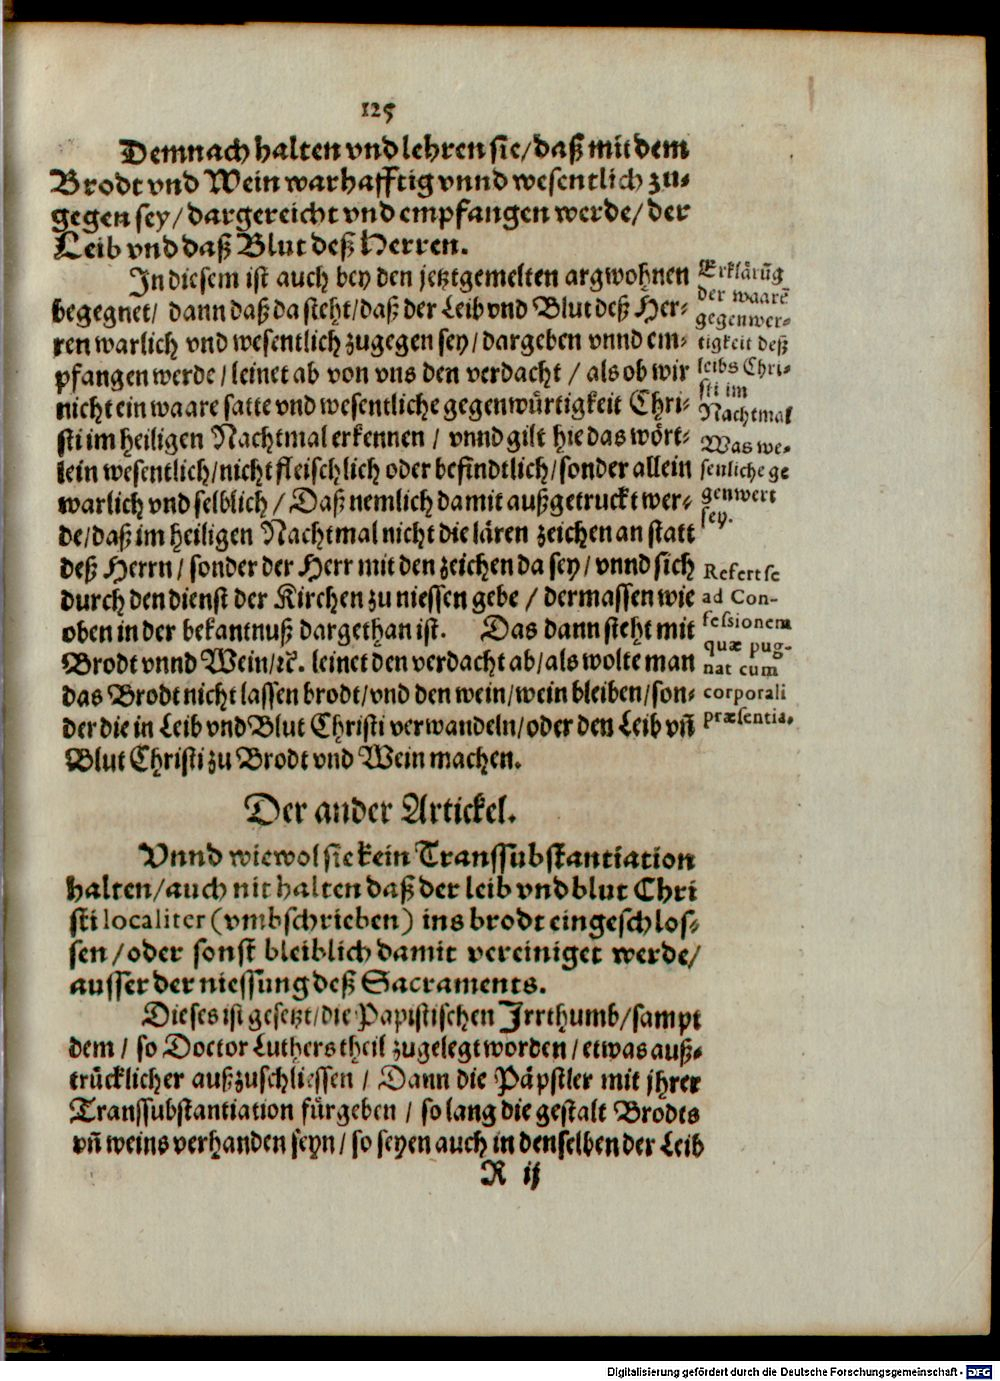 125
Demnach halten vnd lehren sie/daß mit dem
Brodt vnd Wein warhafftig vnnd wesentlich zu-
gegen sey/dargereicht vnd empfangen werde/der
Leib vnd daß Blut deß Herren.
In diesem ist auch bey den jetztgemelten argwohnen
begegnet/ dann daß da steht/daß der Leib vnd Blut deß Her-
ren warlich vnd wesentlich zugegen sey/dargeben vnnd em-
pfangen werde/leinet ab von vns den verdacht / als ob wir
nicht ein waare satte vnd wesentliche gegenwürtigkeit Chri-
sti im heiligen Nachtmal erkennen / vnnd gilt hie das wört-
lein wesentlich/nicht fleischlich oder befindtlich/sonder allein
warlich vnd selblich / Daß nemlich damit außgetruckt wer-
de/daß im heiligen Nachtmal nicht die lären zeichen an statt
deß Herrn/sonder der Herr mit den zeichen da sey/vnnd sich
durch den dienst der Kirchen zu niessen gebe / dermassen wie
oben in der bekantnuß dargethan ist. Das dann steht mit
Brodt vnnd Wein/ꝛc. leinet den verdacht ab/als wolte man
das Brodt nicht lassen brodt/vnd den wein/wein bleiben/son-
der die in Leib vnd Blut Christi verwandeln/oder den Leib vñ
Blut Christi zu Brodt vnd Wein machen.
Erklärũg
der waarẽ
gegenwer-
tigkeit deß
leibs Chri-
sti im
Nachtmal
Was we-
senliche ge
genwert
sey.
Refert se
ad Con-
fessionem
quæ pug-
nat cum
corporali
præsentia.
Der ander Artickel.
Vnnd wiewol sie kein Transsubstantiation
halten/auch nit halten daß der leib vnd blut Chri
sti localiter (vmbschrieben) ins brodt eingeschlos-
sen/oder sonst bleiblich damit vereiniget werde/
ausser der niessung deß Sacraments.
Dieses ist gesetzt/die Papistischen Jrrthumb/sampt
dem/ so Doctor Luthers theil zugelegt worden/etwas auß-
trücklicher außzuschliessen / Dann die Päpstler mit jhrer
Transsubstantiation fürgeben / so lang die gestalt Brodts
vñ weins verhanden seyn/so seyen auch in denselben der Leib
R ij
Digitalisierung gefördert durch die Deutsche Forschungsgemeinschaft - DFG